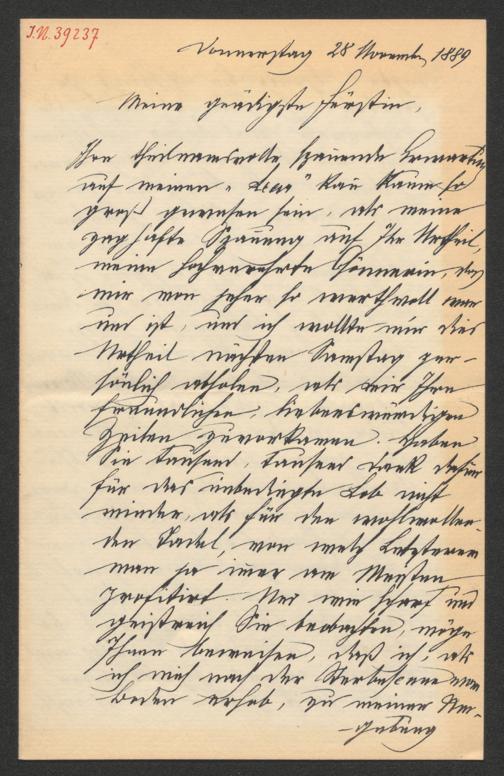 I.N. 39237
Donnerstag 28 November 1889
Meine gnädigste Fürstin,
Ihre theilnamsvolle, spannende Erwartung
auf meinen „Lear" kan kaum so
groß gewesen sein, als meine
zaghafte Spanung auf Ihr Urtheil,
meine hochverehrte Gönnerin, das
mir von jeher so werthvoll war
und ist, und ich wollte mir dies
Urtheil nächsten Samstag per-
sönlich abholen, als mir Ihre
freundlichen, liebenswürdigen
Zeilen zuvorkamen. Haben
Sie tausend, tausend Dank dafür
für das unbedingte Lob nicht
minder, als für den wohlwollen-
den Tadel, von welch Letzterem
man ja imer am Meisten
profitirt. Und wie scharf und
geistreich Sie beobachten, möge
Ihnen beweisen, daß ich, als
ich mich nach der Sterbescene vom
Boden erhob, zu meiner Um-
gebung